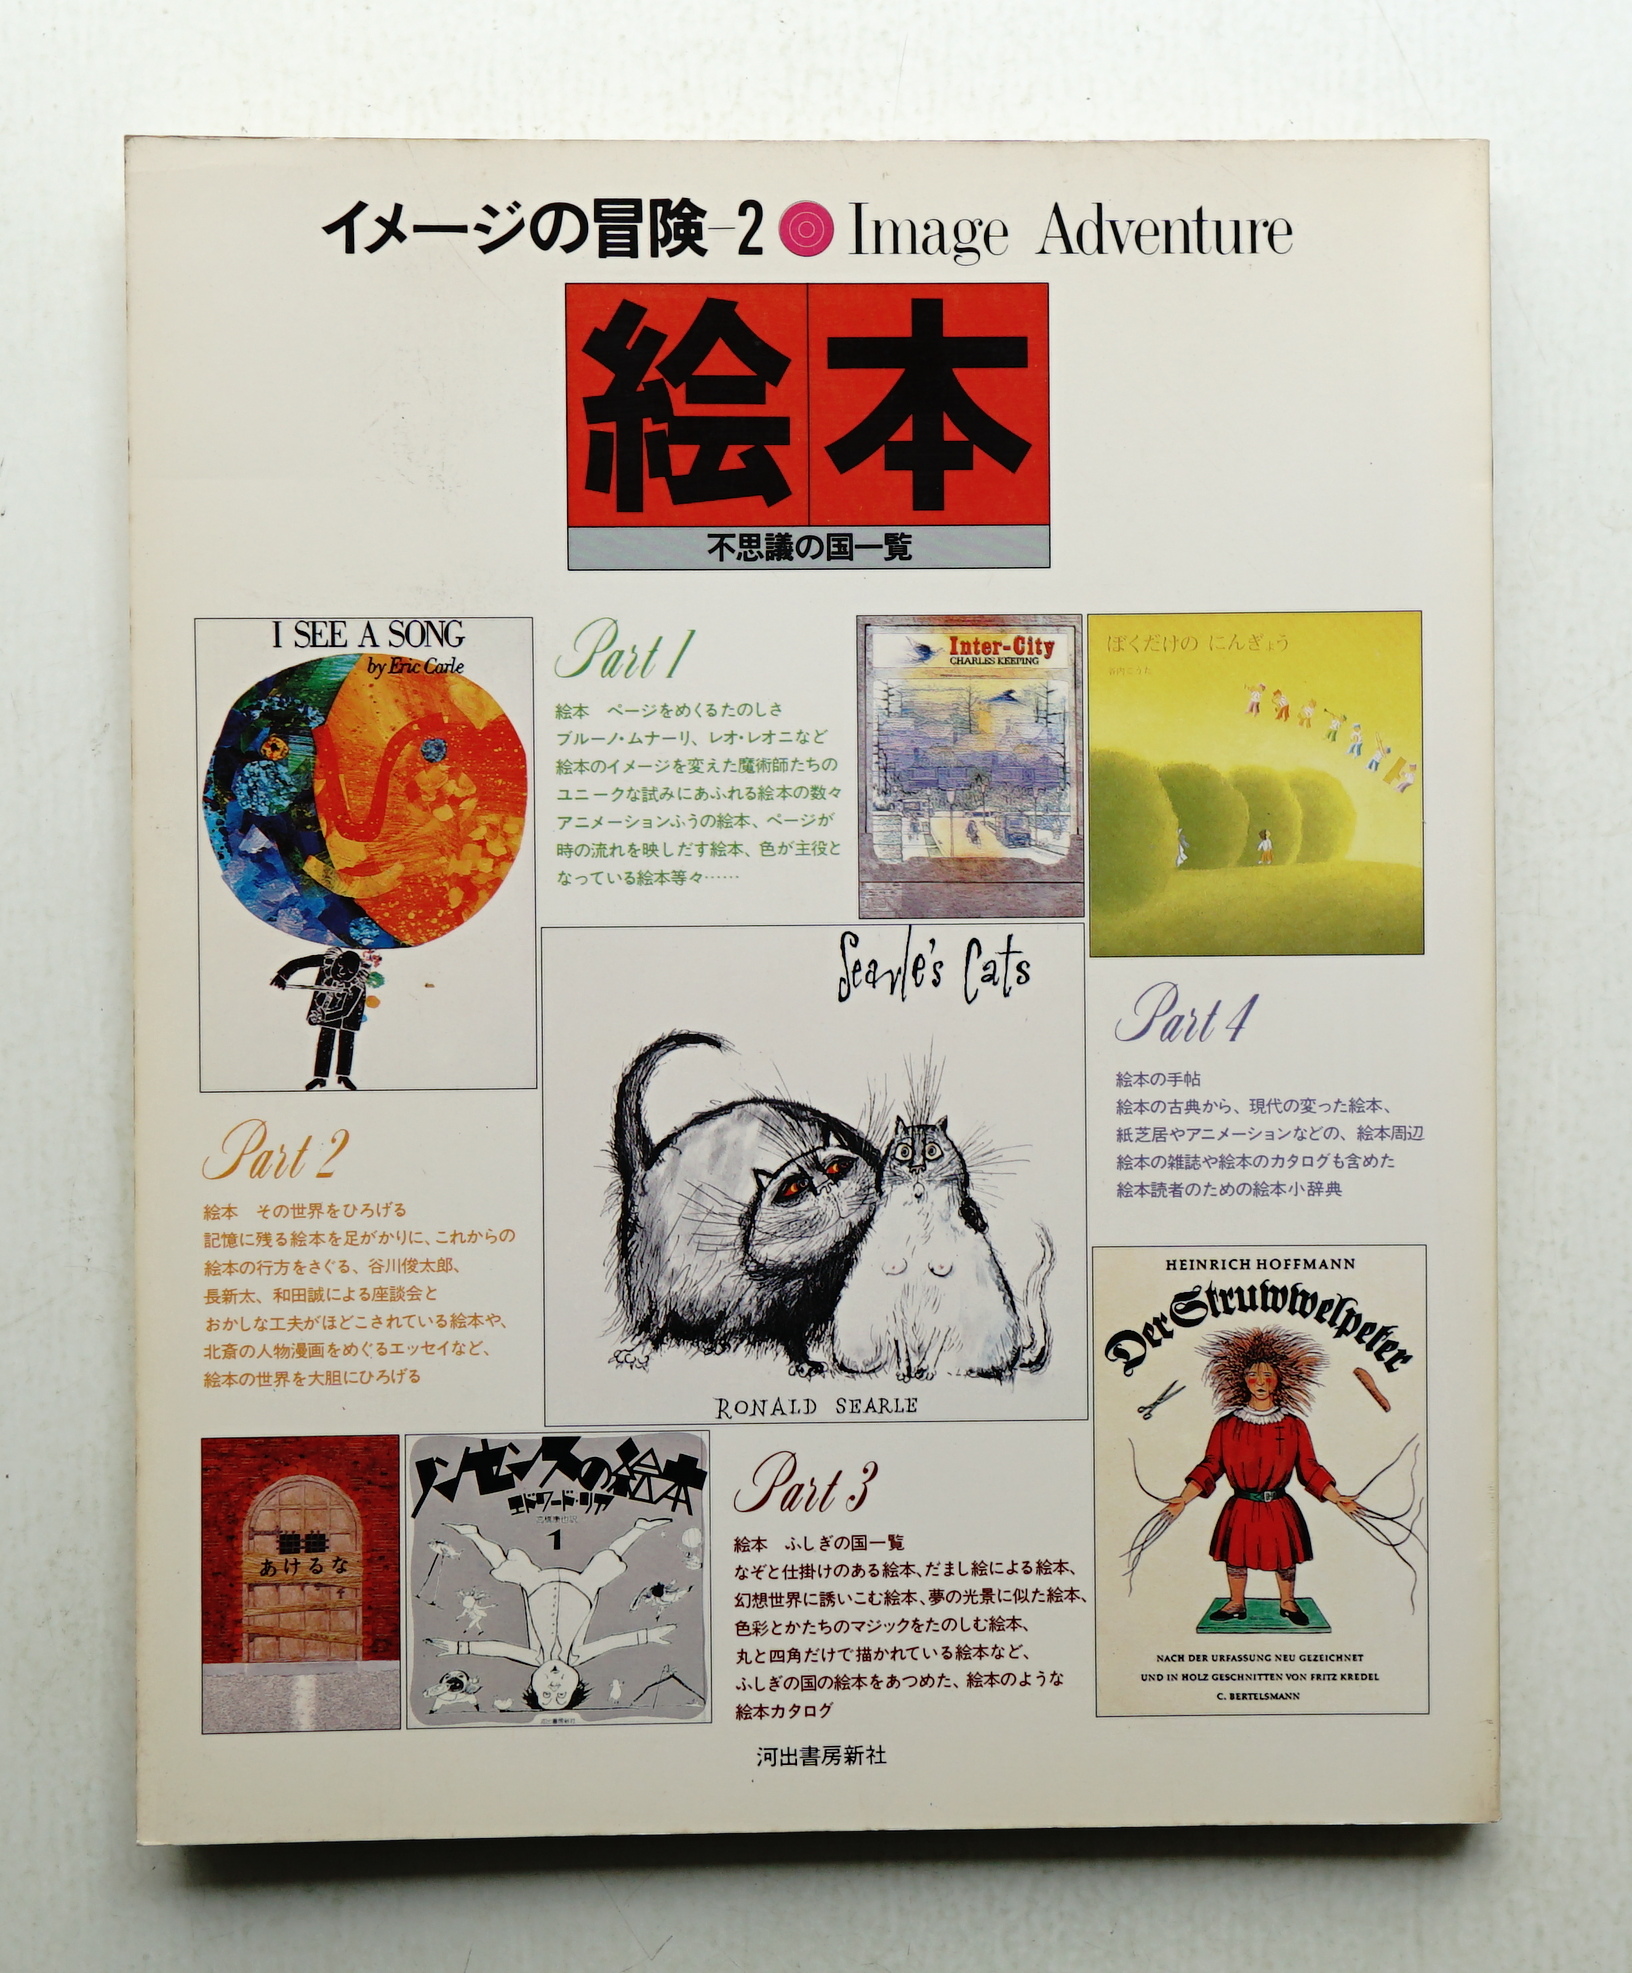 イメージの冒険-2 Image Adventure
絵本
不思議の国一覧
I SEE A SONG
by Eric Carle
Part 1
絵本　ページをめくるたのしさ
ブルーノ・ムナーリ、レオ・レオニなど
絵本のイメージを変えた魔術師たちの
ユニークな試みにあふれる絵本の数々
アニメーションふうの絵本、ページが
時の流れを映しだす絵本、色が主役と
なっている絵本等々……
Inter-City
CHARLES KEEPING
ぼくだけの にんぎょう
Searle's Cats
RONALD SEARLE
Part 2
絵本　その世界をひろげる
記憶に残る絵本を足がかりに、これからの
絵本の行方をさぐる、谷川俊太郎、
長新太、和田誠による座談会と
おかしな工夫がほどこされている絵本や、
北斎の人物漫画をめぐるエッセイなど、
絵本の世界を大胆にひろげる
Part 4
絵本の手帖
絵本の古典から、現代の変った絵本、
紙芝居やアニメーションなどの、絵本周辺
絵本の雑誌や絵本のカタログも含めた
絵本読者のための絵本小辞典
あけるな
ノンセンスの絵本
エドワード・リア
高橋康也訳
1
河出書房新社
Part 3
絵本　ふしぎの国一覧
なぞと仕掛けのある絵本、だまし絵による絵本、
幻想世界に誘いこむ絵本、夢の光景に似た絵本、
色彩とかたちのマジックをたのしむ絵本、
丸と四角だけで描かれている絵本など、
ふしぎの国の絵本をあつめた、絵本のような
絵本カタログ
HEINRICH HOFFMANN
Der Struwwelpeter
NACH DER URFASSUNG NEU GEZEICHNET
UND IN HOLZ GESCHNITTEN VON FRITZ KREDEL
C. BERTELSMANN
河出書房新社